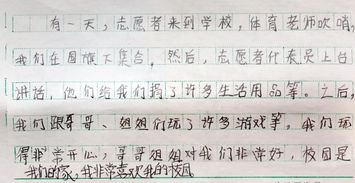 有一天，志愿者来到学校，体育老师吹哨，
我们在国旗下集合，然后，志愿者代表员上台
讲话，他们给我们捐了许多生活用品等。之后，
我们跟哥哥、姐姐们玩了许多游戏等，我们玩
得非常开心，哥哥姐姐对我们非常好，校园是
我们的家，我非常喜欢我的校园